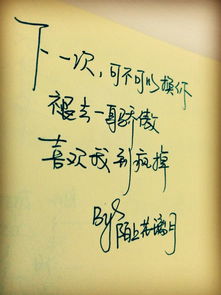 下一次,可不可以换你
褪去一身骄傲
喜欢我到疯掉
By:陌上若离月